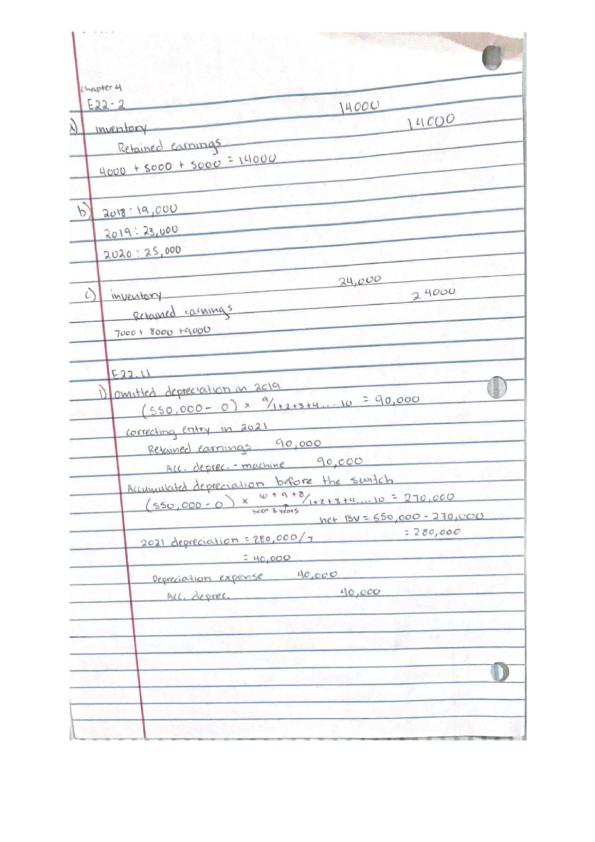 Chapter 4
E22-2
a) inventory 14000
Retained earnings 14000
4000 + 5000 + 5000 = 14000
b) 2018: 19,000
2019: 23,000
2020: 25,000
c) inventory 24,000
Retained earnings 24000
7000 + 8000 + 9000
E22.11
1) omitted depreciation in 2019
(550,000 - 0) × 9/1+2+3+4.... 10 = 90,000
correcting entry in 2021
Retained earnings 90,000
Acc. deprec. - machine 90,000
Accumulated depreciation before the switch
(550,000 - 0) × 10 + 9 + 8/1+2+3+4.... 10 = 270,000
over 3 years
net BV = 550,000 - 270,000
2021 depreciation = 280,000/7 = 280,000
= 40,000
Depreciation expense 40,000
Acc. deprec. 40,000